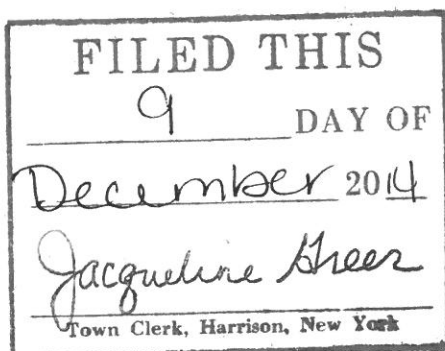 FILED THIS
9 DAY OF
December 2014
Jacqueline Greer
Town Clerk, Harrison, New York